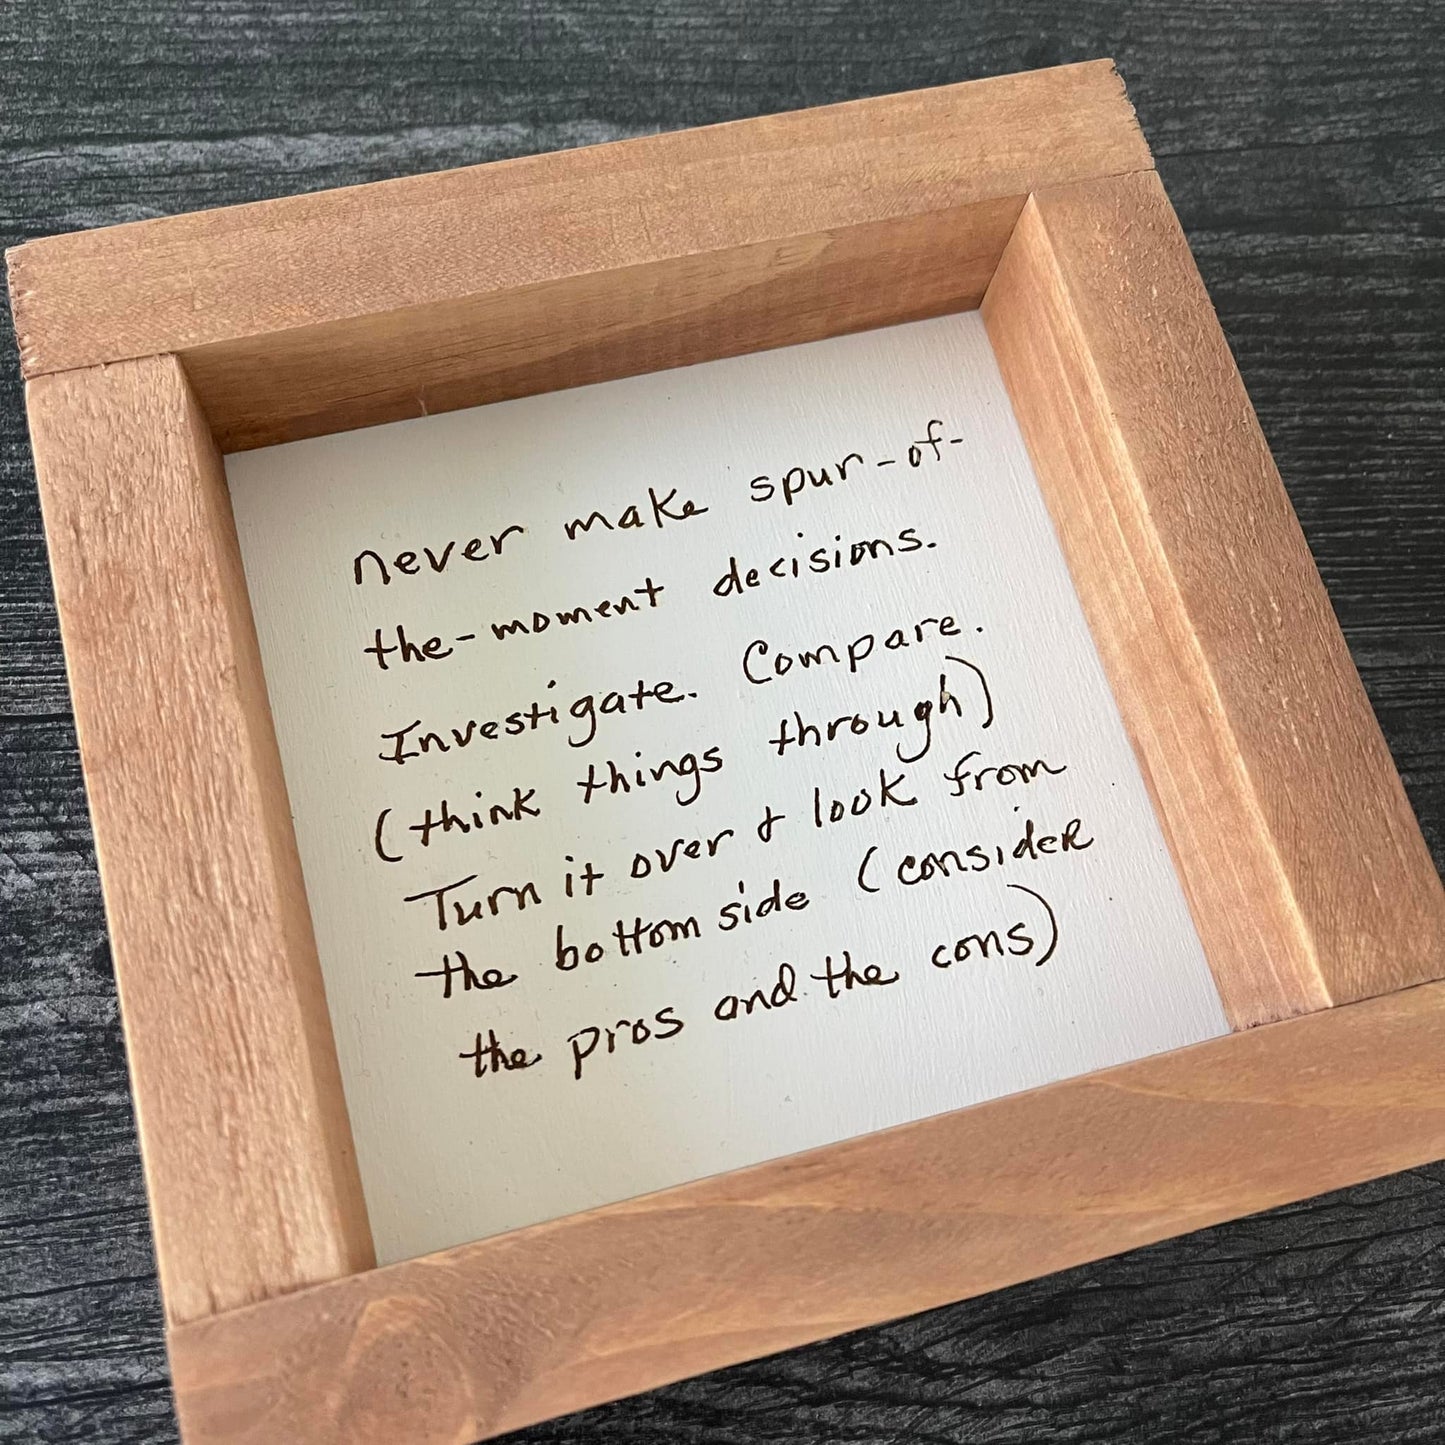 never make spur-of-
the-moment decisions.
Investigate. Compare.
(think things through)
Turn it over & look from
the bottom side (consider
the pros and the cons)